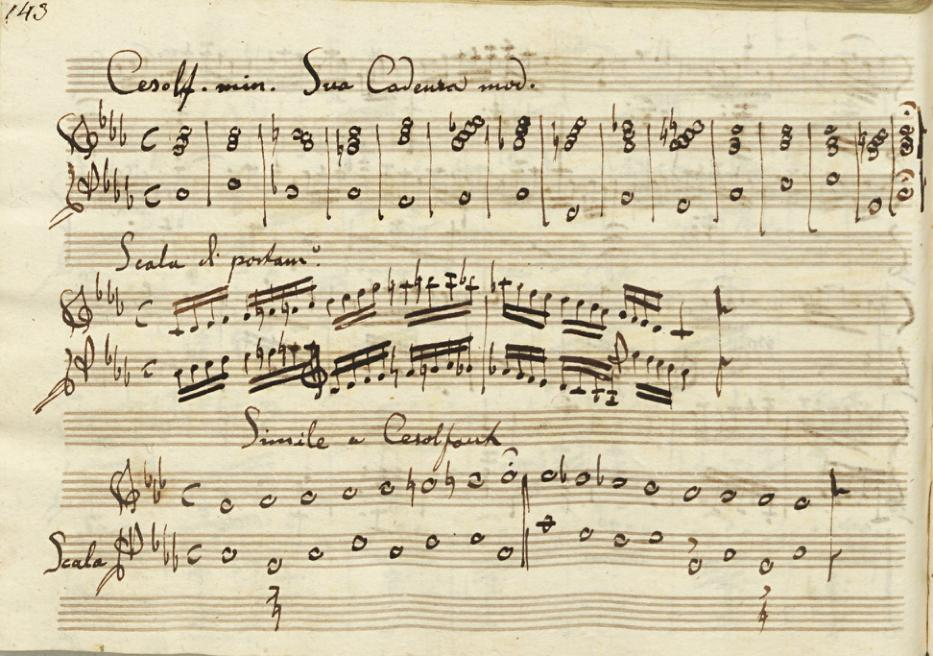 143
Cesolf. min. Sua Cadenza mod.
Scala di portam.º
Simile a Cesolfaut
Scala